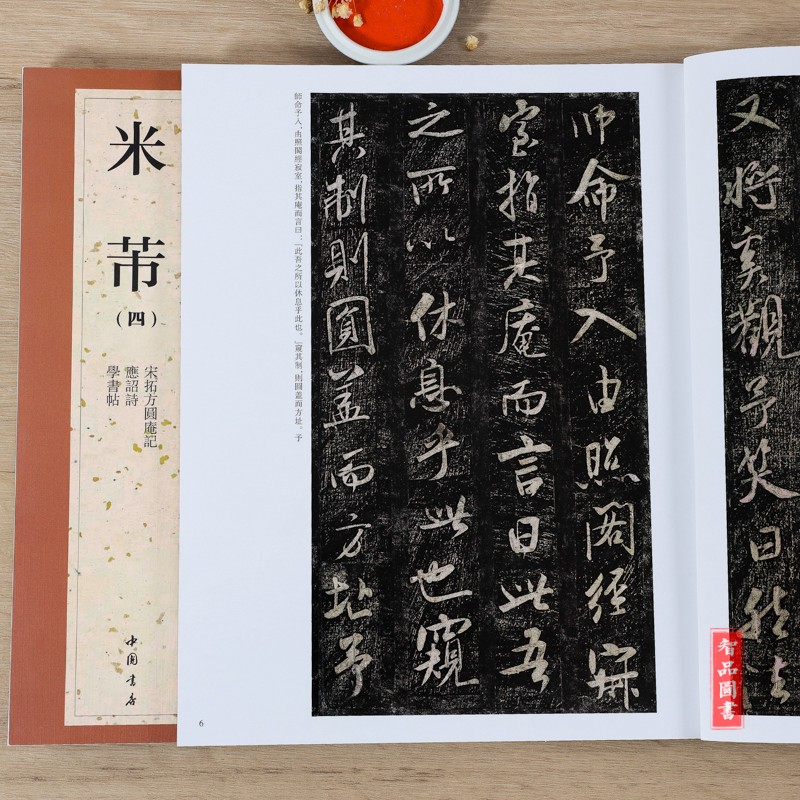 米芾
（四）
宋拓方圓庵記
應詔詩
學書帖
中國書店
師命予入，由照閣經寂室，指其庵而言曰：「此吾之所以休息乎此也。」窺其制，則圓蓋而方址。予
師命予入由照閣經寂
室指其庵而言曰此吾
之所以休息乎此也窺
其制則圓蓋而方址予
6
又將奚觀予笑曰然
智品圖書